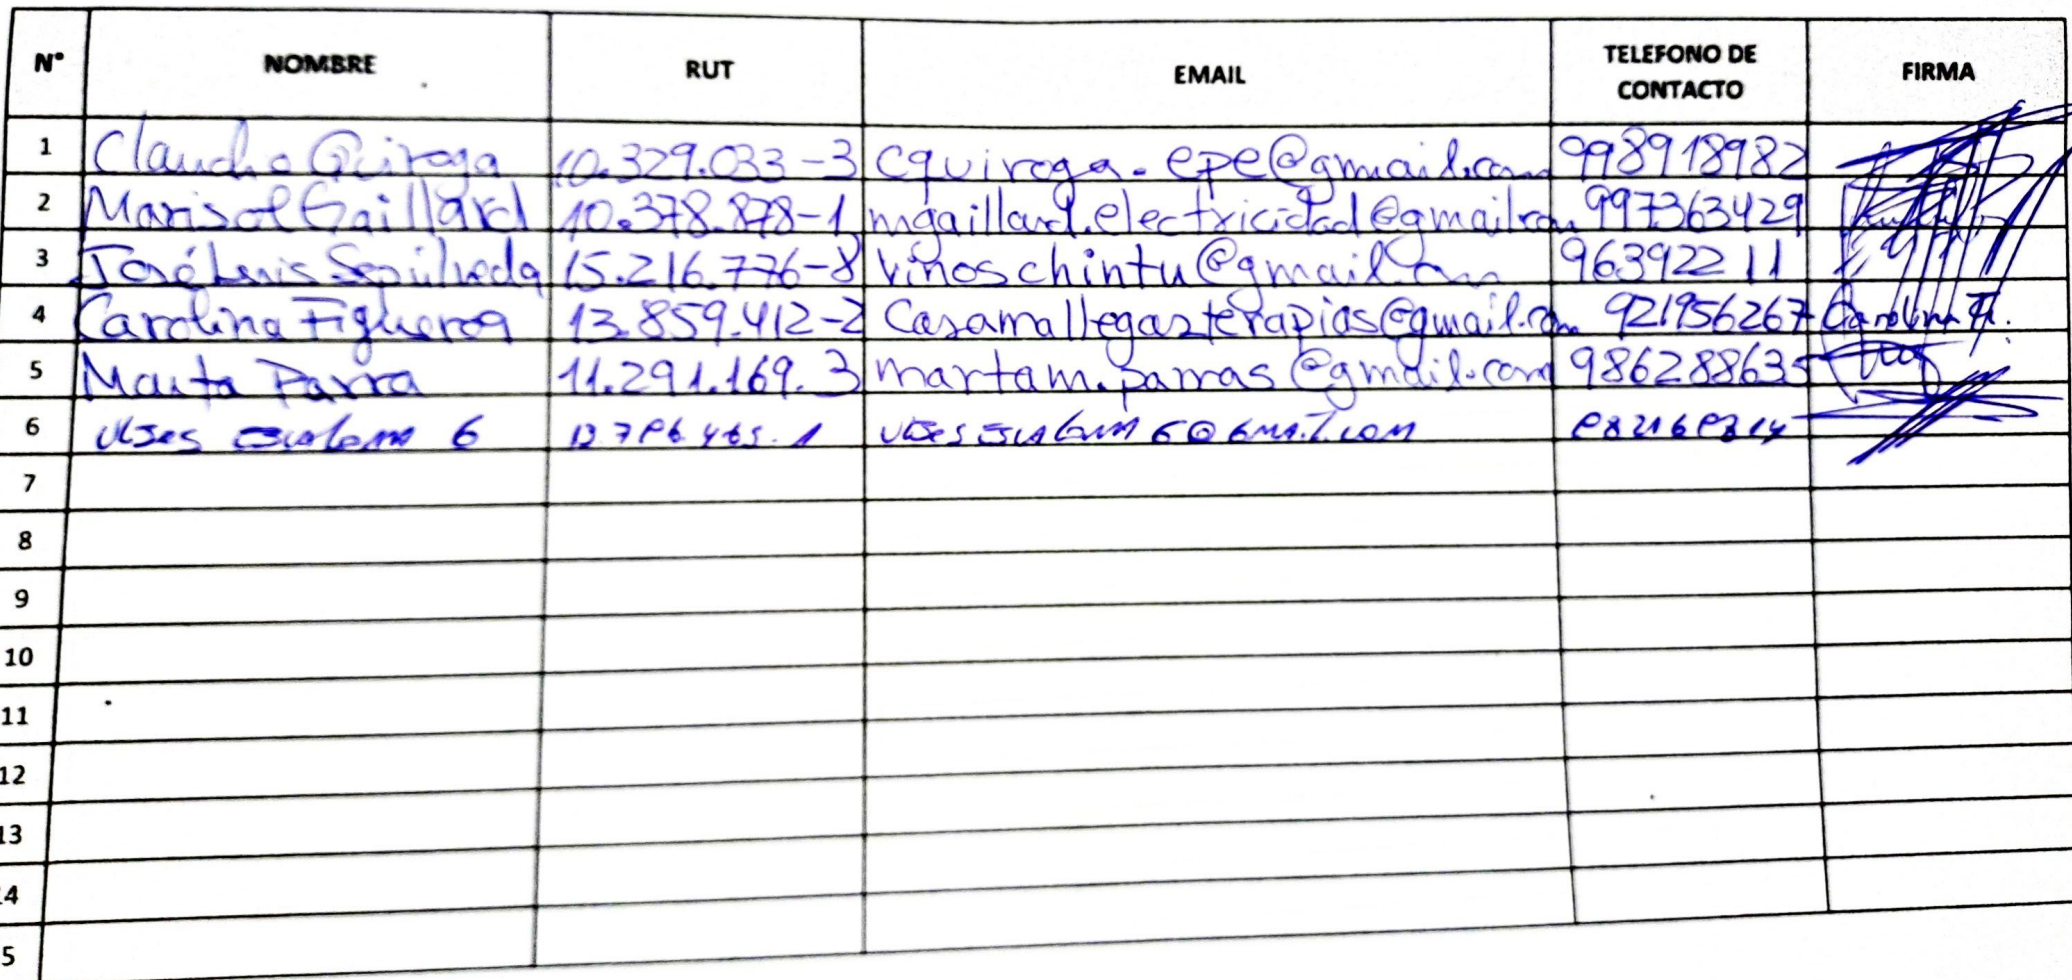 N° NOMBRE RUT EMAIL TELEFONO DE CONTACTO FIRMA
1 Claudio Quiroga 10.329.033-3 cquiroga.epe@gmail.com 998918982
2 Marisol Gaillard 10.378.878-1 mgaillard.electricidad@gmail.com 997363429
3 José Luis Sepúlveda 15.216.776-8 vinoschintu@gmail.com 96392211
4 Carolina Figueroa 13.859.412-2 Casamallegasterapias@gmail.com 921956267 Carolina F.
5 Marta Parra 11.291.169.3 martam.parras@gmail.com 986288635
6
7
8
9
10
11
12
13
14
5